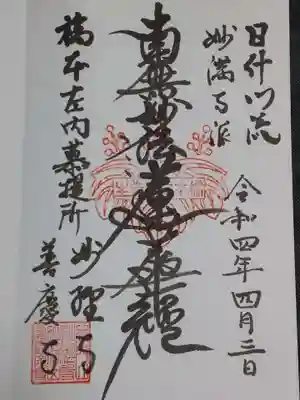 日什門流
妙満寺派
令和四年四月三日
南無妙法蓮華経
橋本左内菩提所
妙経寺
善慶寺